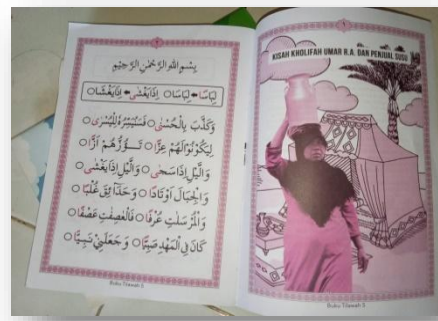 بِسْمِ اللهِ الرَّحْمٰنِ الرَّحِيْمِ
لِبَاسًا ← لِبَاسَا○ اِذَا يَغْشٰى ← اِذَا يَغْشَا○
وَكَذَّبَ بِالْحُسْنٰى○ فَسَنُيَسِّرُهٗ لِلْيُسْرٰى○
لِيَكُوْنُوْا لَهُمْ عِزًّا○ تَؤُزُّهُمْ اَزًّا○
وَالَّيْلِ اِذَا سَجٰى○ وَالَّيْلِ اِذَا يَغْشٰى○
وَالْجِبَالَ اَوْتَادًا○ وَحَدَآئِقَ غُلْبًا○
وَالْمُرْسَلٰتِ عُرْفًا○ فَالْعٰصِفٰتِ عَصْفًا○
كَانَ فِى الْمَهْدِ صَبِيًّا○ وَجَعَلَنِيْ نَبِيًّا○
Buku Tilawah 5
KISAH KHOLIFAH UMAR R.A. DAN PENJUAL SUSU
Buku Tilawah 5